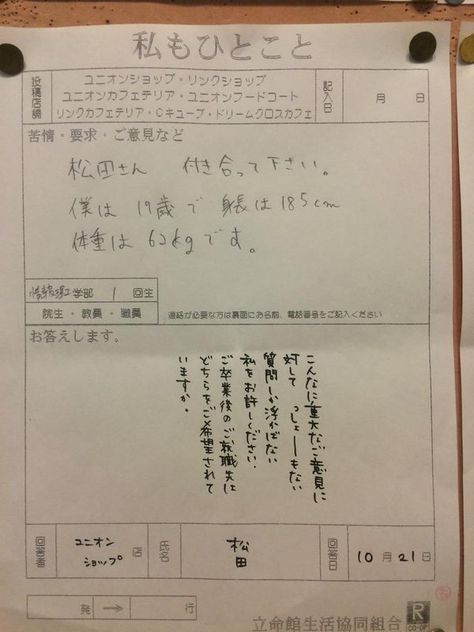 私もひとこと
投稿店舗
ユニオンショップ・リンクショップ
ユニオンカフェテリア・ユニオンフードコート
リンクカフェテリア・Cキューブ・ドリームクロスカフェ
記入日
月 日
苦情・要求・ご意見など
松田さん 付き合って下さい。
僕は 19歳で 身長は185cm
体重は 62kgです。
情報理工学部 1 回生
院生・教員・職員
連絡が必要な方は裏面にお名前、電話番号をご記入ください
お答えします。
こんなに重大なご意見に
対して しょーもない
質問しか浮かばない
私をお許しください。
ご卒業後のご就職先は
どちらをご希望されて
いますか。
回答者
ユニオン
ショップ
店
氏名
松田
回答日
10月21日
発 → 行
立命館生活協同組合
R